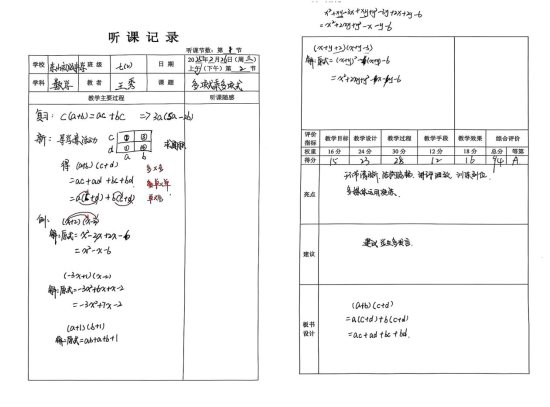 听课记录
听课节数：第 节
学校 班级 七(2) 日期 2025年2月26日(周三)
上午(下午)第2节
学科 数学 教者 王秀 课题 多项式乘多项式
教学主要过程 听课随感
复习: c(a+b)=ac+bc => 3a(5a-2b)
新: 活动 c ① ②
d ③ ④
a b
得 (a+b)(c+d) 多×多
=ac+ad+bc+bd. 单×单
=a(c+d)+b(c+d) 单×多
例:
(x+2)(x-3)
解:原式=x²-3x+2x-6
=x²-x-6
(-3x+1)(x-2)
解:原式=-3x²+6x+x-2
=-3x²+7x-2
(a+1)(b+1)
解:原式=ab+a+b+1
x²+xy-3x+xy+y²-3y+2x+2y-6
=x²+2xy+y²-x-y-6
(x+y+2)(x+y-3)
解:原式=(x+y)²-(x+y)-6
=x²+2xy+y²-x-y-6
评价指标 教学目标 教学设计 教学过程 教学手段 教学效果 综合评价
权重 16分 24分 30分 12分 18分 总分 等第
得分 15 23 28 12 16 94 A
亮点
环节清晰, 讲评细致, 训练到位.
多媒体运用
建议 建议
板书设计
(a+b)(c+d)
=a(c+d)+b(c+d)
=ac+ad+bc+bd.